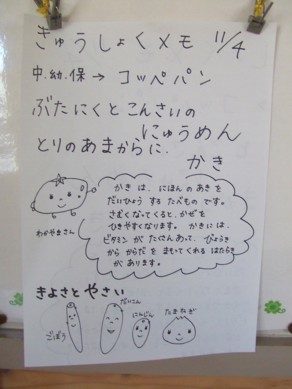 きゅうしょくメモ 11/4
中.幼.保→コッペパン
ぶたにくとこんさいの
にゅうめん
とりのあまからに.
かき
かきは、にほんのあきを
だいひょうするたべものです。
さむくなってくると、かぜを
ひきやすくなります。かきには、
ビタミンがたくさんあって、びょうき
からからだをまもってくれるはたらき
があります。
わかやまさん
きよさとやさい
ごぼう
だいこん
にんじん
たまねぎ